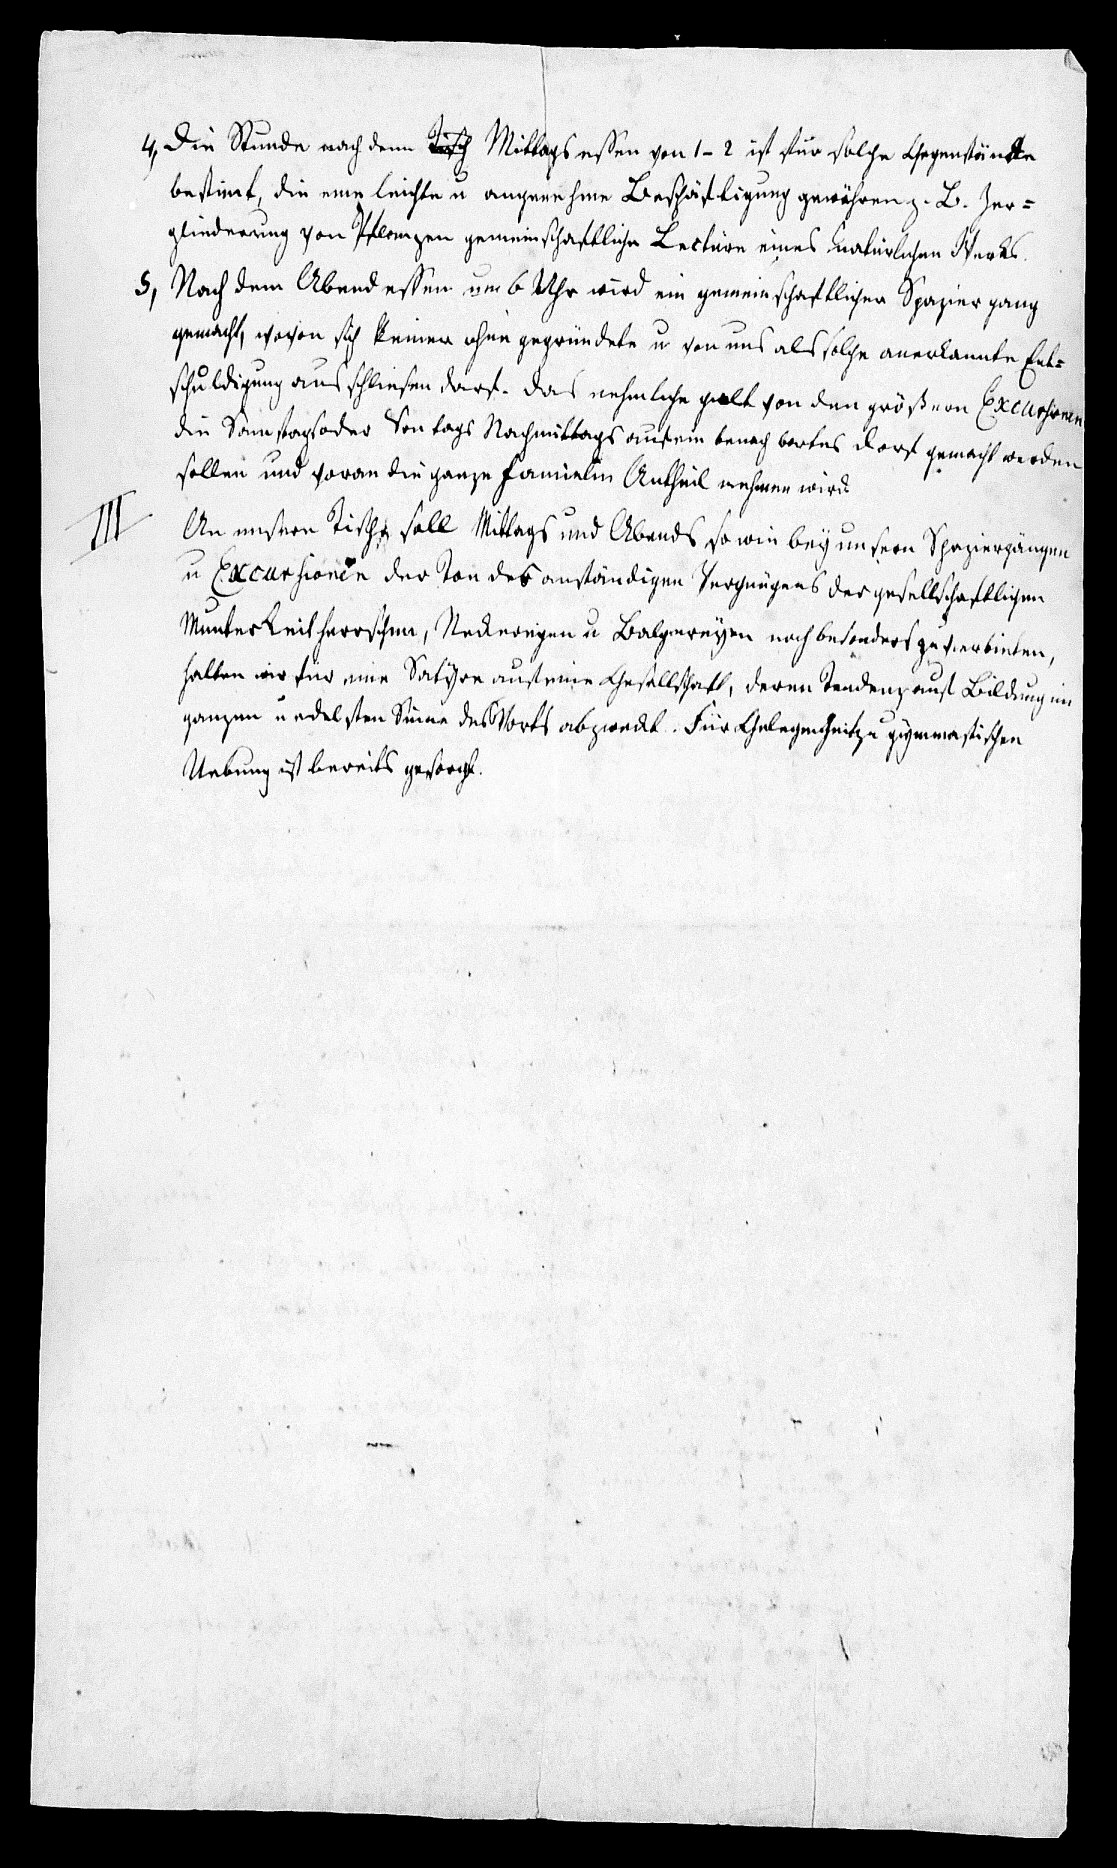 4, Die Stunde nach dem Tisch Mittagsessen von 1-2 ist für solche Gegenstände
bestimt, die eine leichte u angenehme Beschäftigung gewähren z. B. Zer=
gliederung von Pflanzen gemeinschaftliche Lecture eines Werks.
5, Nach dem Abendessen um 6 Uhr wird ein gemeinschaftlicher Spaziergang
gemacht, wovon sich keiner ohne gegründete u von uns als solche anerkannte Ent=
schuldigung ausschliesen darf. das nehmliche gilt von den größern Excursionen
die Samstags oder Sontags Nachmittags auf ein benachbartes Dorf gemacht werden
sollen und woran die ganze Familie Antheil nehmen wird.
III An unserem Tische soll Mittags und Abends so wie bey unsern Spaziergängen
u Excursionen der Ton des anständigen Vergnügens der gesellschaftlichen
Munterkeit herrschen, Neckereyen u Balgereyen noch besonders zu verbieten,
halten wir für eine Satyre auf eine Gesellschaft, deren Tendenz auf Bildung im
ganzen u edelsten Sinne des Worts abzweckt. Für Gelegenheit zu gymnastischen
Uebung ist bereits gesorgt.